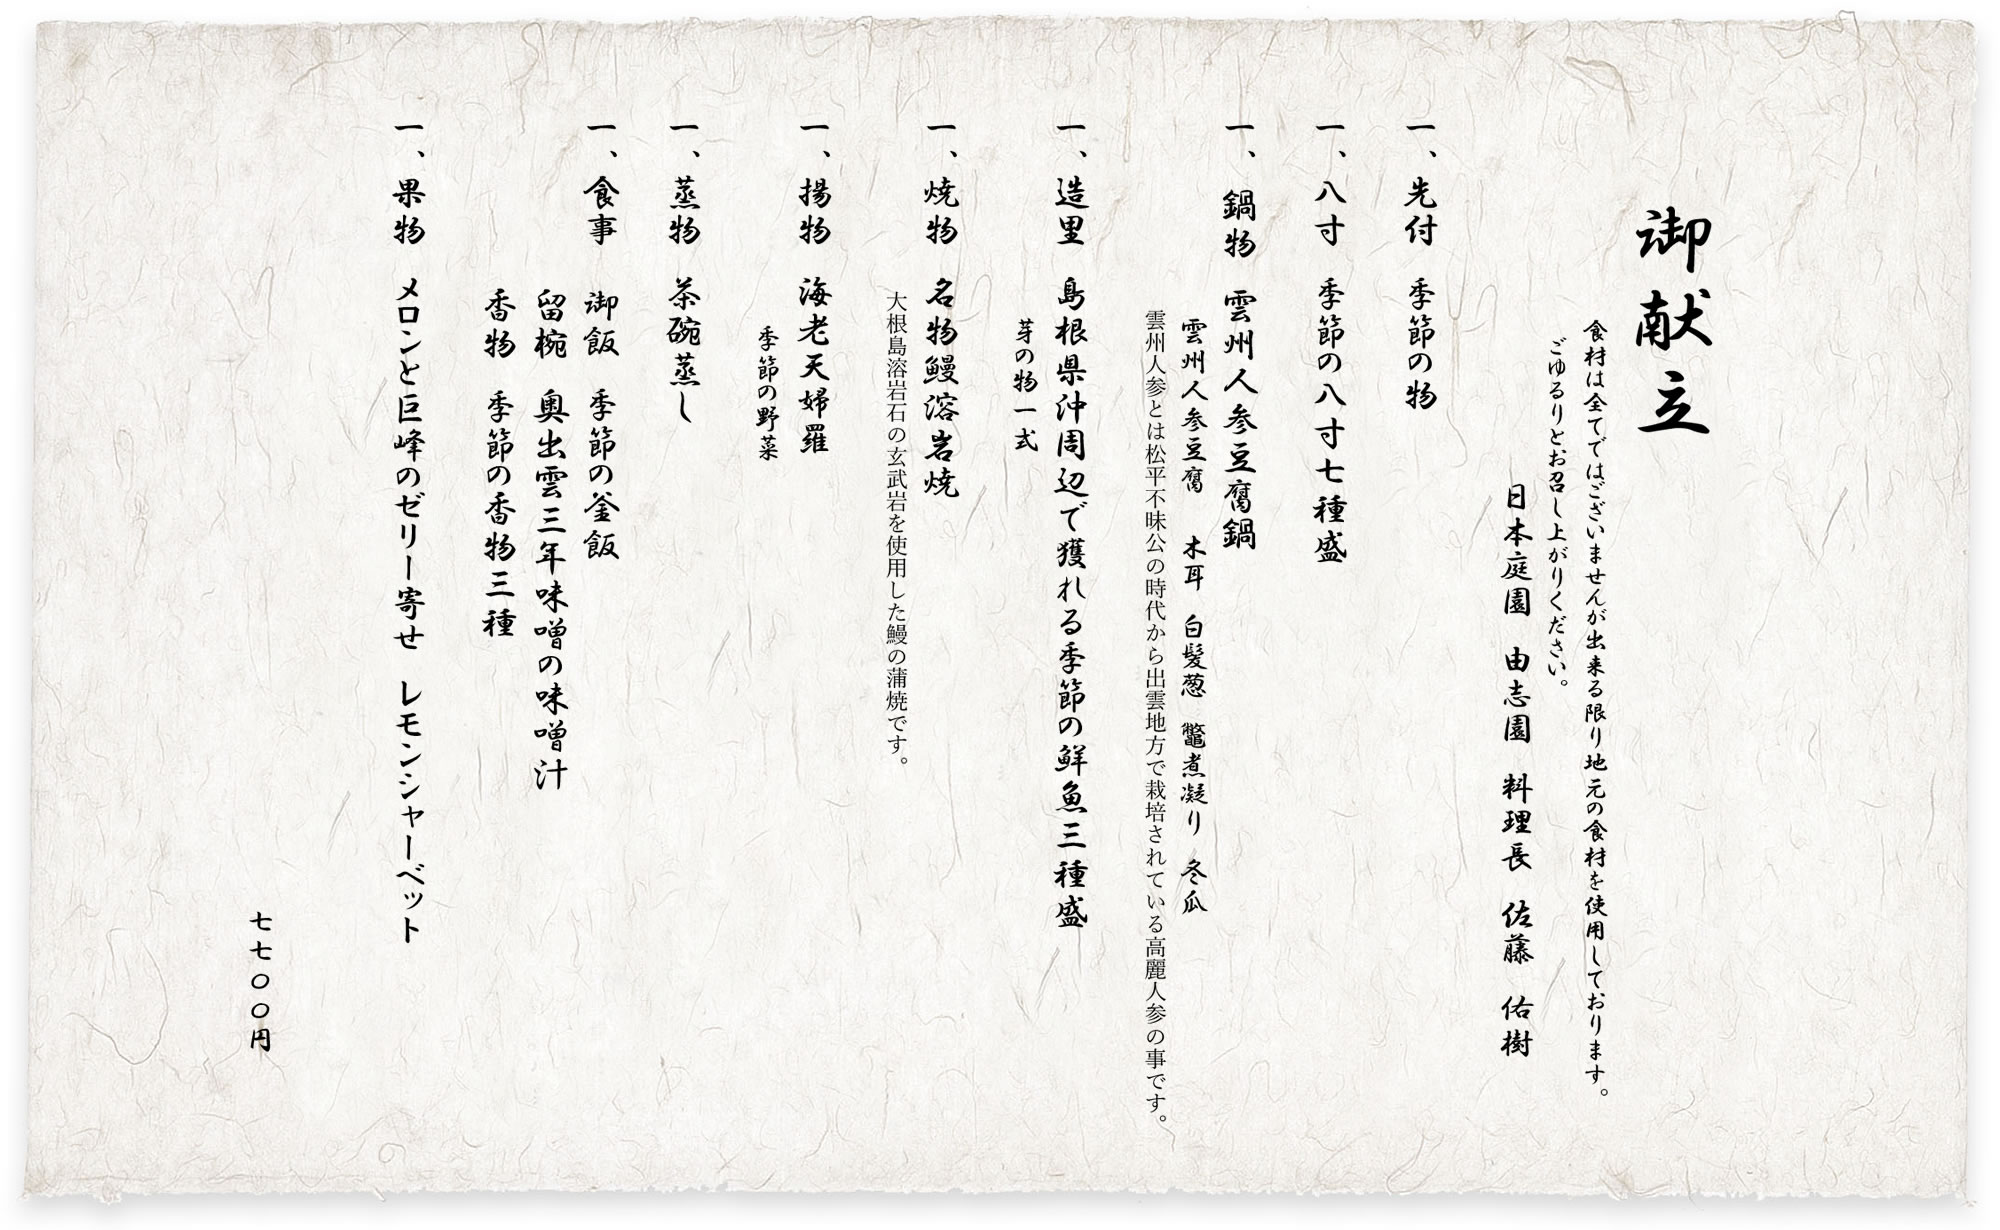 御献立
食材は全てではございませんが出来る限り地元の食材を使用しております。
ごゆるりとお召し上がりください。
日本庭園 由志園 料理長 佐藤 佑樹
一、先付 季節の物
一、八寸 季節の八寸七種盛
一、鍋物 雲州人参豆腐鍋
雲州人参豆腐 木耳 白髪葱 鼈煮凝り 冬瓜
雲州人参とは松平不昧公の時代から出雲地方で栽培されている高麗人参の事です。
一、造里 島根県沖周辺で獲れる季節の鮮魚三種盛
芽の物一式
一、焼物 名物鰻溶岩焼
大根島溶岩石の玄武岩を使用した鰻の蒲焼です。
一、揚物 海老天婦羅
季節の野菜
一、蒸物 茶碗蒸し
一、食事 御飯 季節の釜飯
留椀 奥出雲三年味噌の味噌汁
香物 季節の香物三種
一、果物 メロンと巨峰のゼリー寄せ レモンシャーベット
七七〇〇円